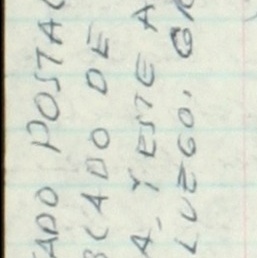 TADO POSTAL
BCADO DE
A, Y ESTE A
LUEGO. GR